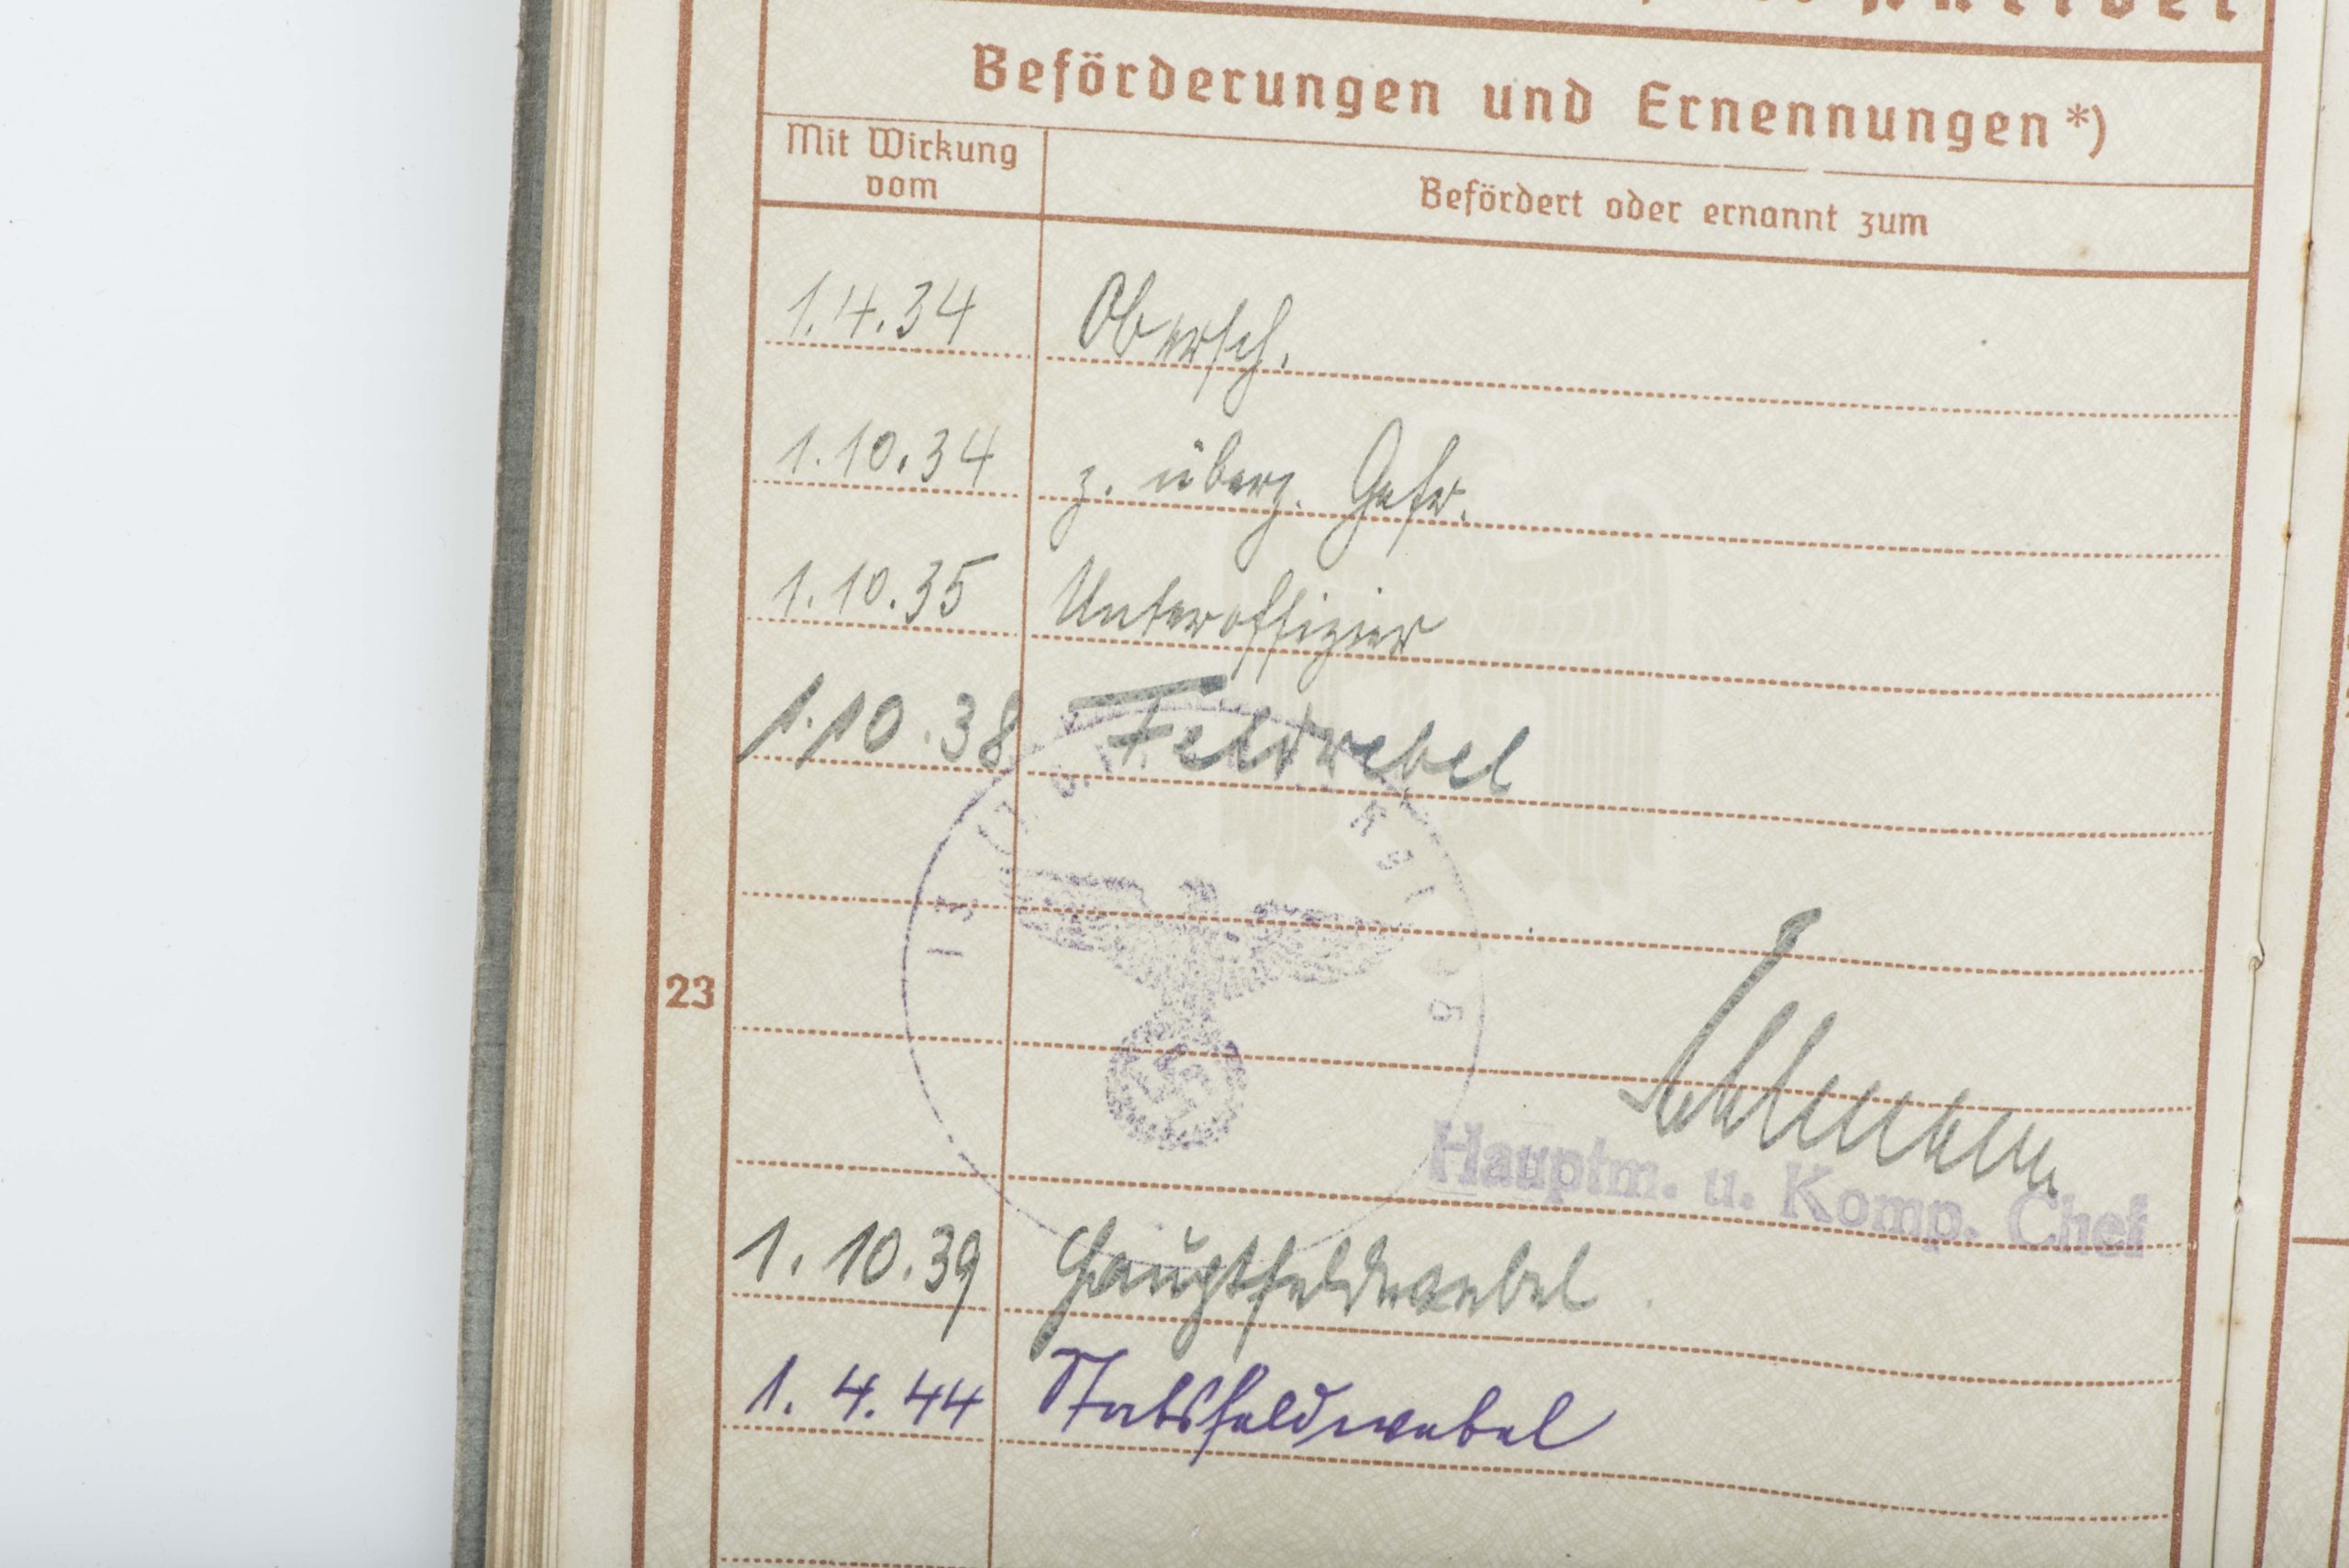 Beförderungen und Ernennungen*)
Mit Wirkung
vom
Befördert oder ernannt zum
1.4.34 Obersch.
1.10.34 z. überz. Gefr.
1.10.35 Unteroffizier
1.10.38 Feldwebel
23
Hauptm. u. Komp. Chef
1.10.39 Hauptfeldwebel
1.4.44 Stabsfeldwebel